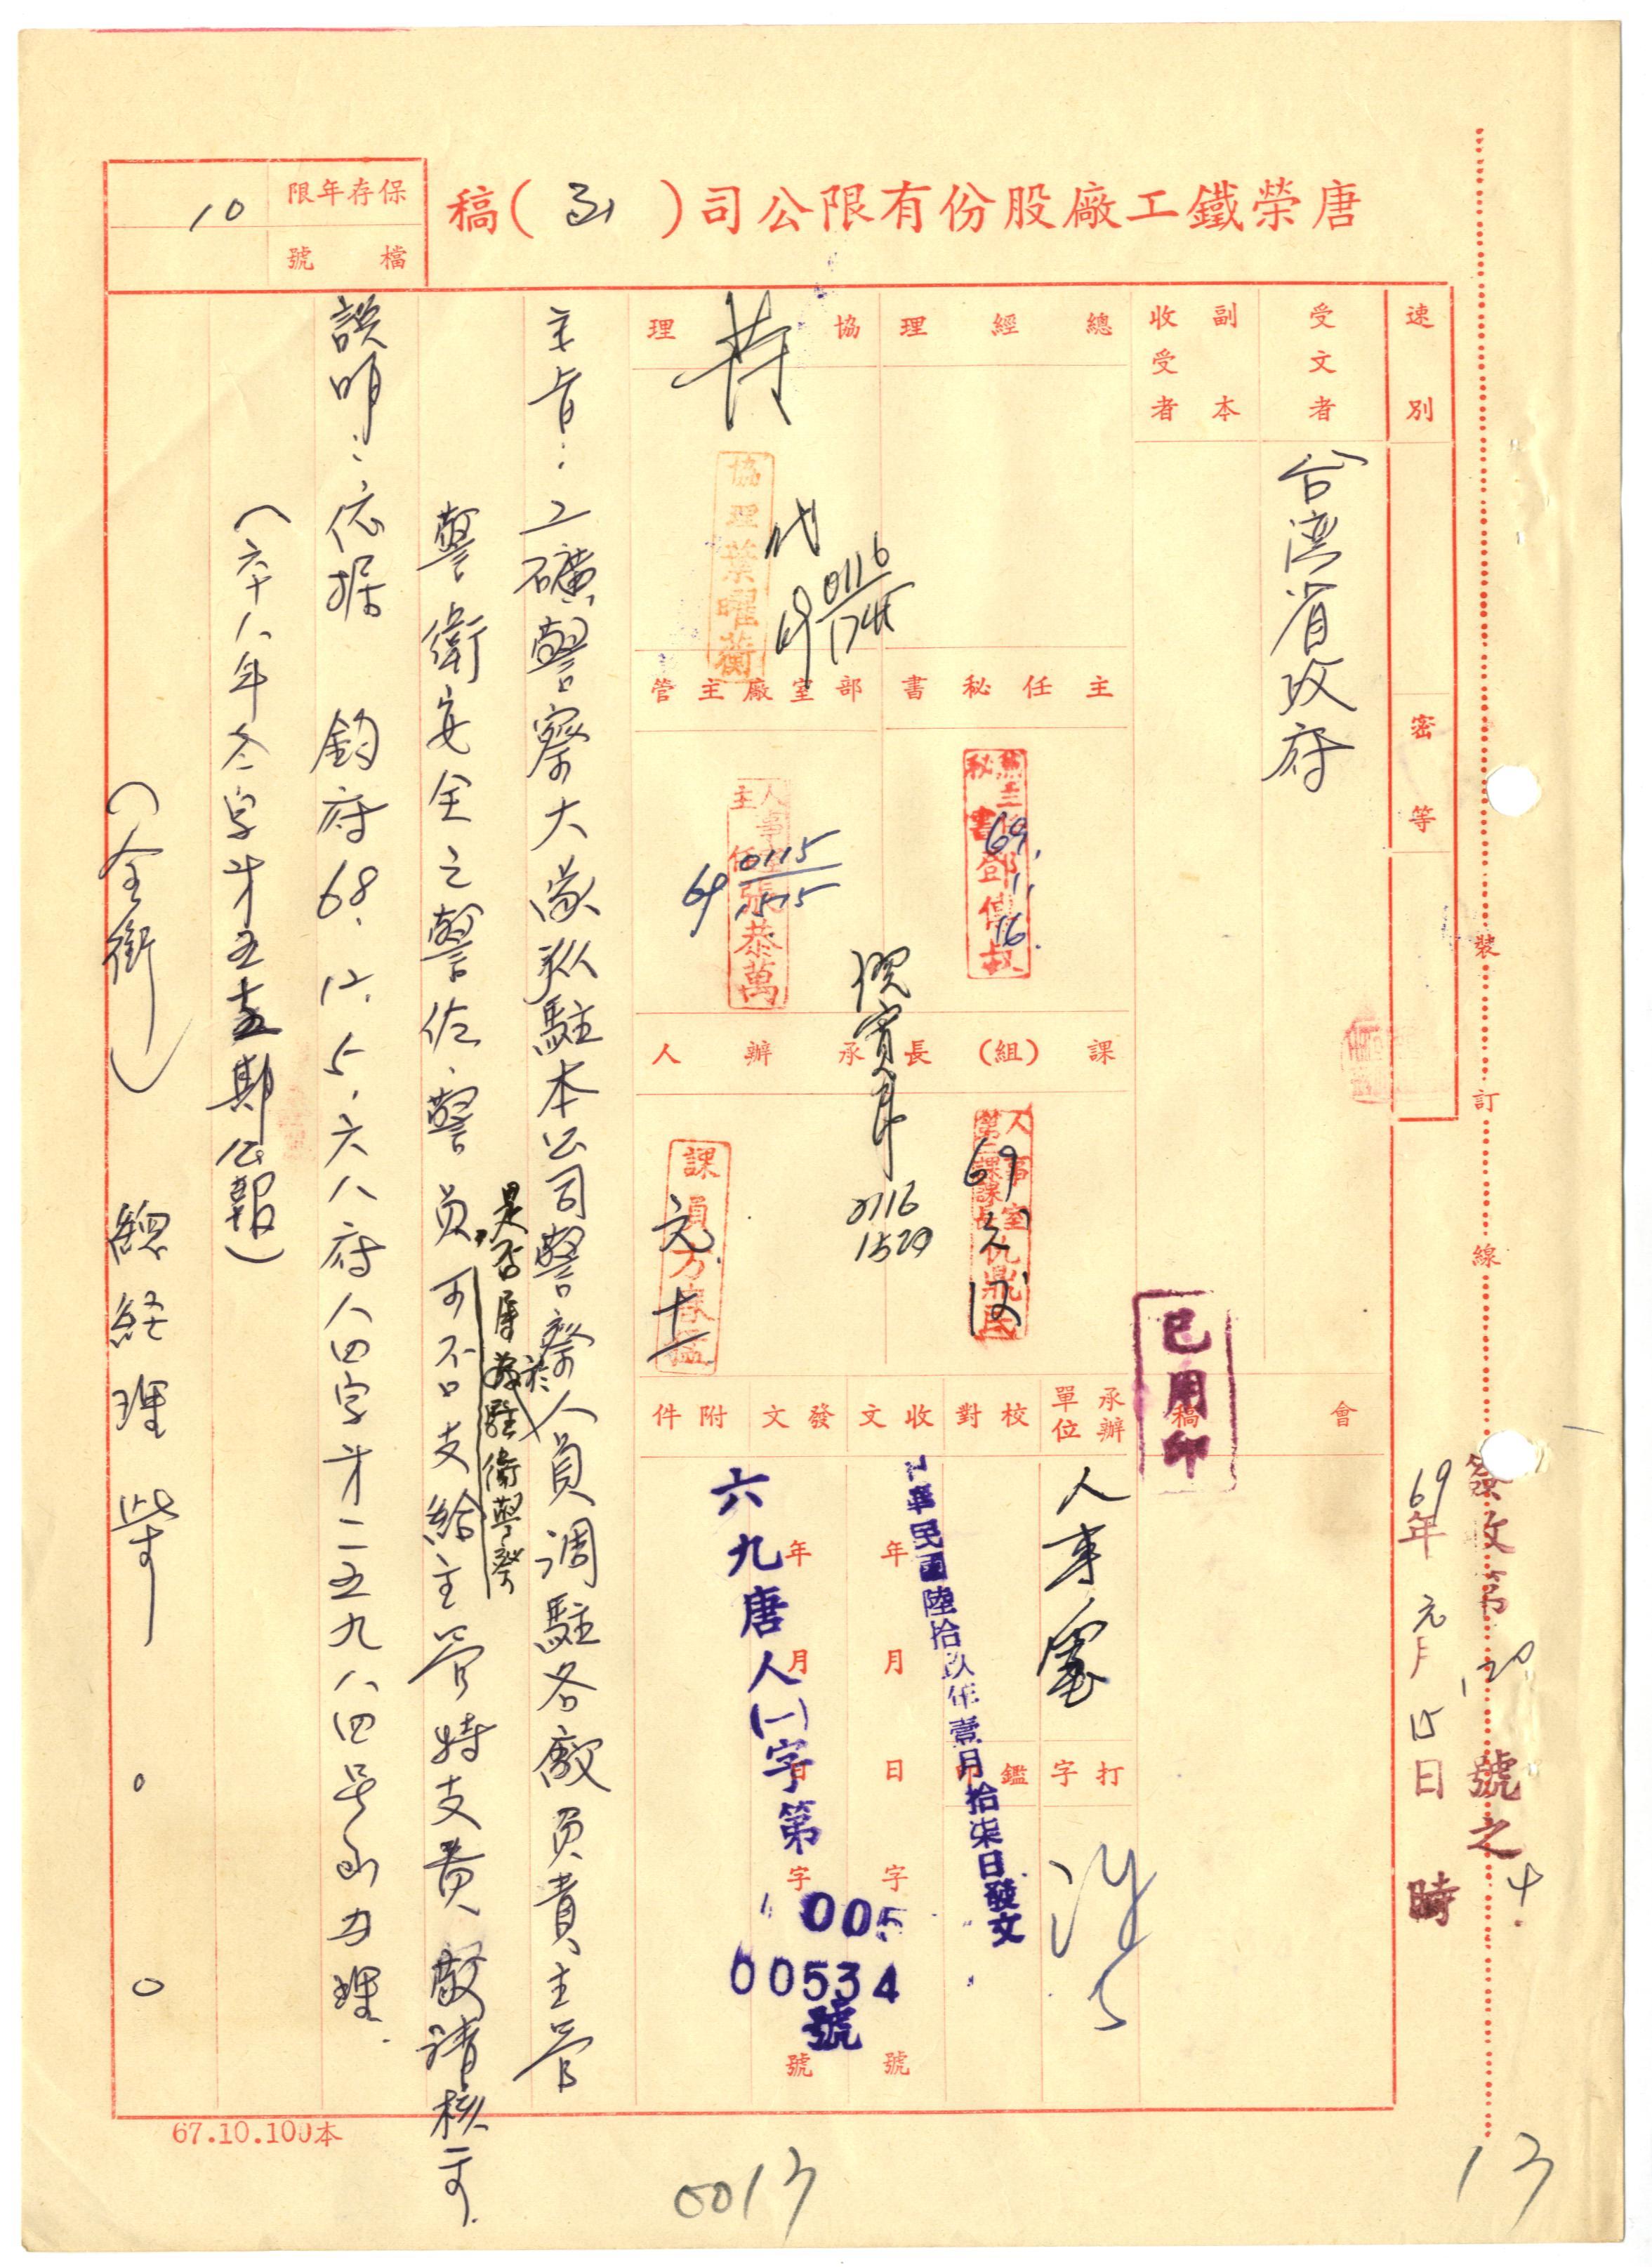 唐榮鐵工廠股份有限公司(函)稿
保存年限
10
檔號
速別
密等
受文者
台湾省政府
副本
收受者
總經理
協理
協理葉曜蘅
代
0116
1745
主任秘書
部室廠主管
69.1.16.
人事室主任張恭萬
69 0115
1515
課(組)長
承辦人
人事室第一課課長仇鼎民
69
0116
1529
課員方
元.十
會稿
已用印
承辦單位
人事室
校對
收文
發文
附件
打字
鑑印
年月日字號
年月日字號
中華民國陸拾玖年壹月拾柒日發文
六九唐人(一)字第
00534
號
簽收第120號之4.
69年元月15日時
裝訂線
主旨:工礦警察大隊派駐本公司警察人員调駐各廠負責主管
警衛安全之警佐、警員,是否屬於駐衛警察
可否支給主管特支費敬請核示.
說明:依据 鈞府68.12.5.六八府人四字第一二五九八四号函办理.
(六十八年冬字第五十五期公報)
(全銜) 總経理 柴○○
67.10.100本
0013
13